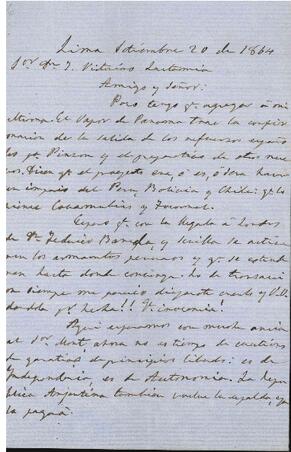 Lima Setiembre 20 de 1864
Sor Dn J. Victorino Lastarria
Amigo y Señor:
Poco tengo qe agregar à mi
última. El Vapor de Panamá trae la confir-
macion de la salida de los refuerzos españo
les pa Pinzon y el proyectan de otros nue
vos. Dicen qe el proyecto era ó es, ó será hacer
un imperio del Perú, Bolivia y Chile: qe lo
tienen
Espero qe con la llegada à Londres
de Dn Federico Barreda y Sevilla se activa
ran los armamentos peruanos y qe se esten
dan hasta donde convenga. La transacion
siempre me parecio
dandola pr hecha!!
Aqui esperamos con mucha ansia
al Sor Montt ahora no es tiempo de cuestiones
de garantias de principios liberales: es de
Independencia es de Autonomia. La Repu
blica Argentina tambien vuelve la espalda,
la pagará.